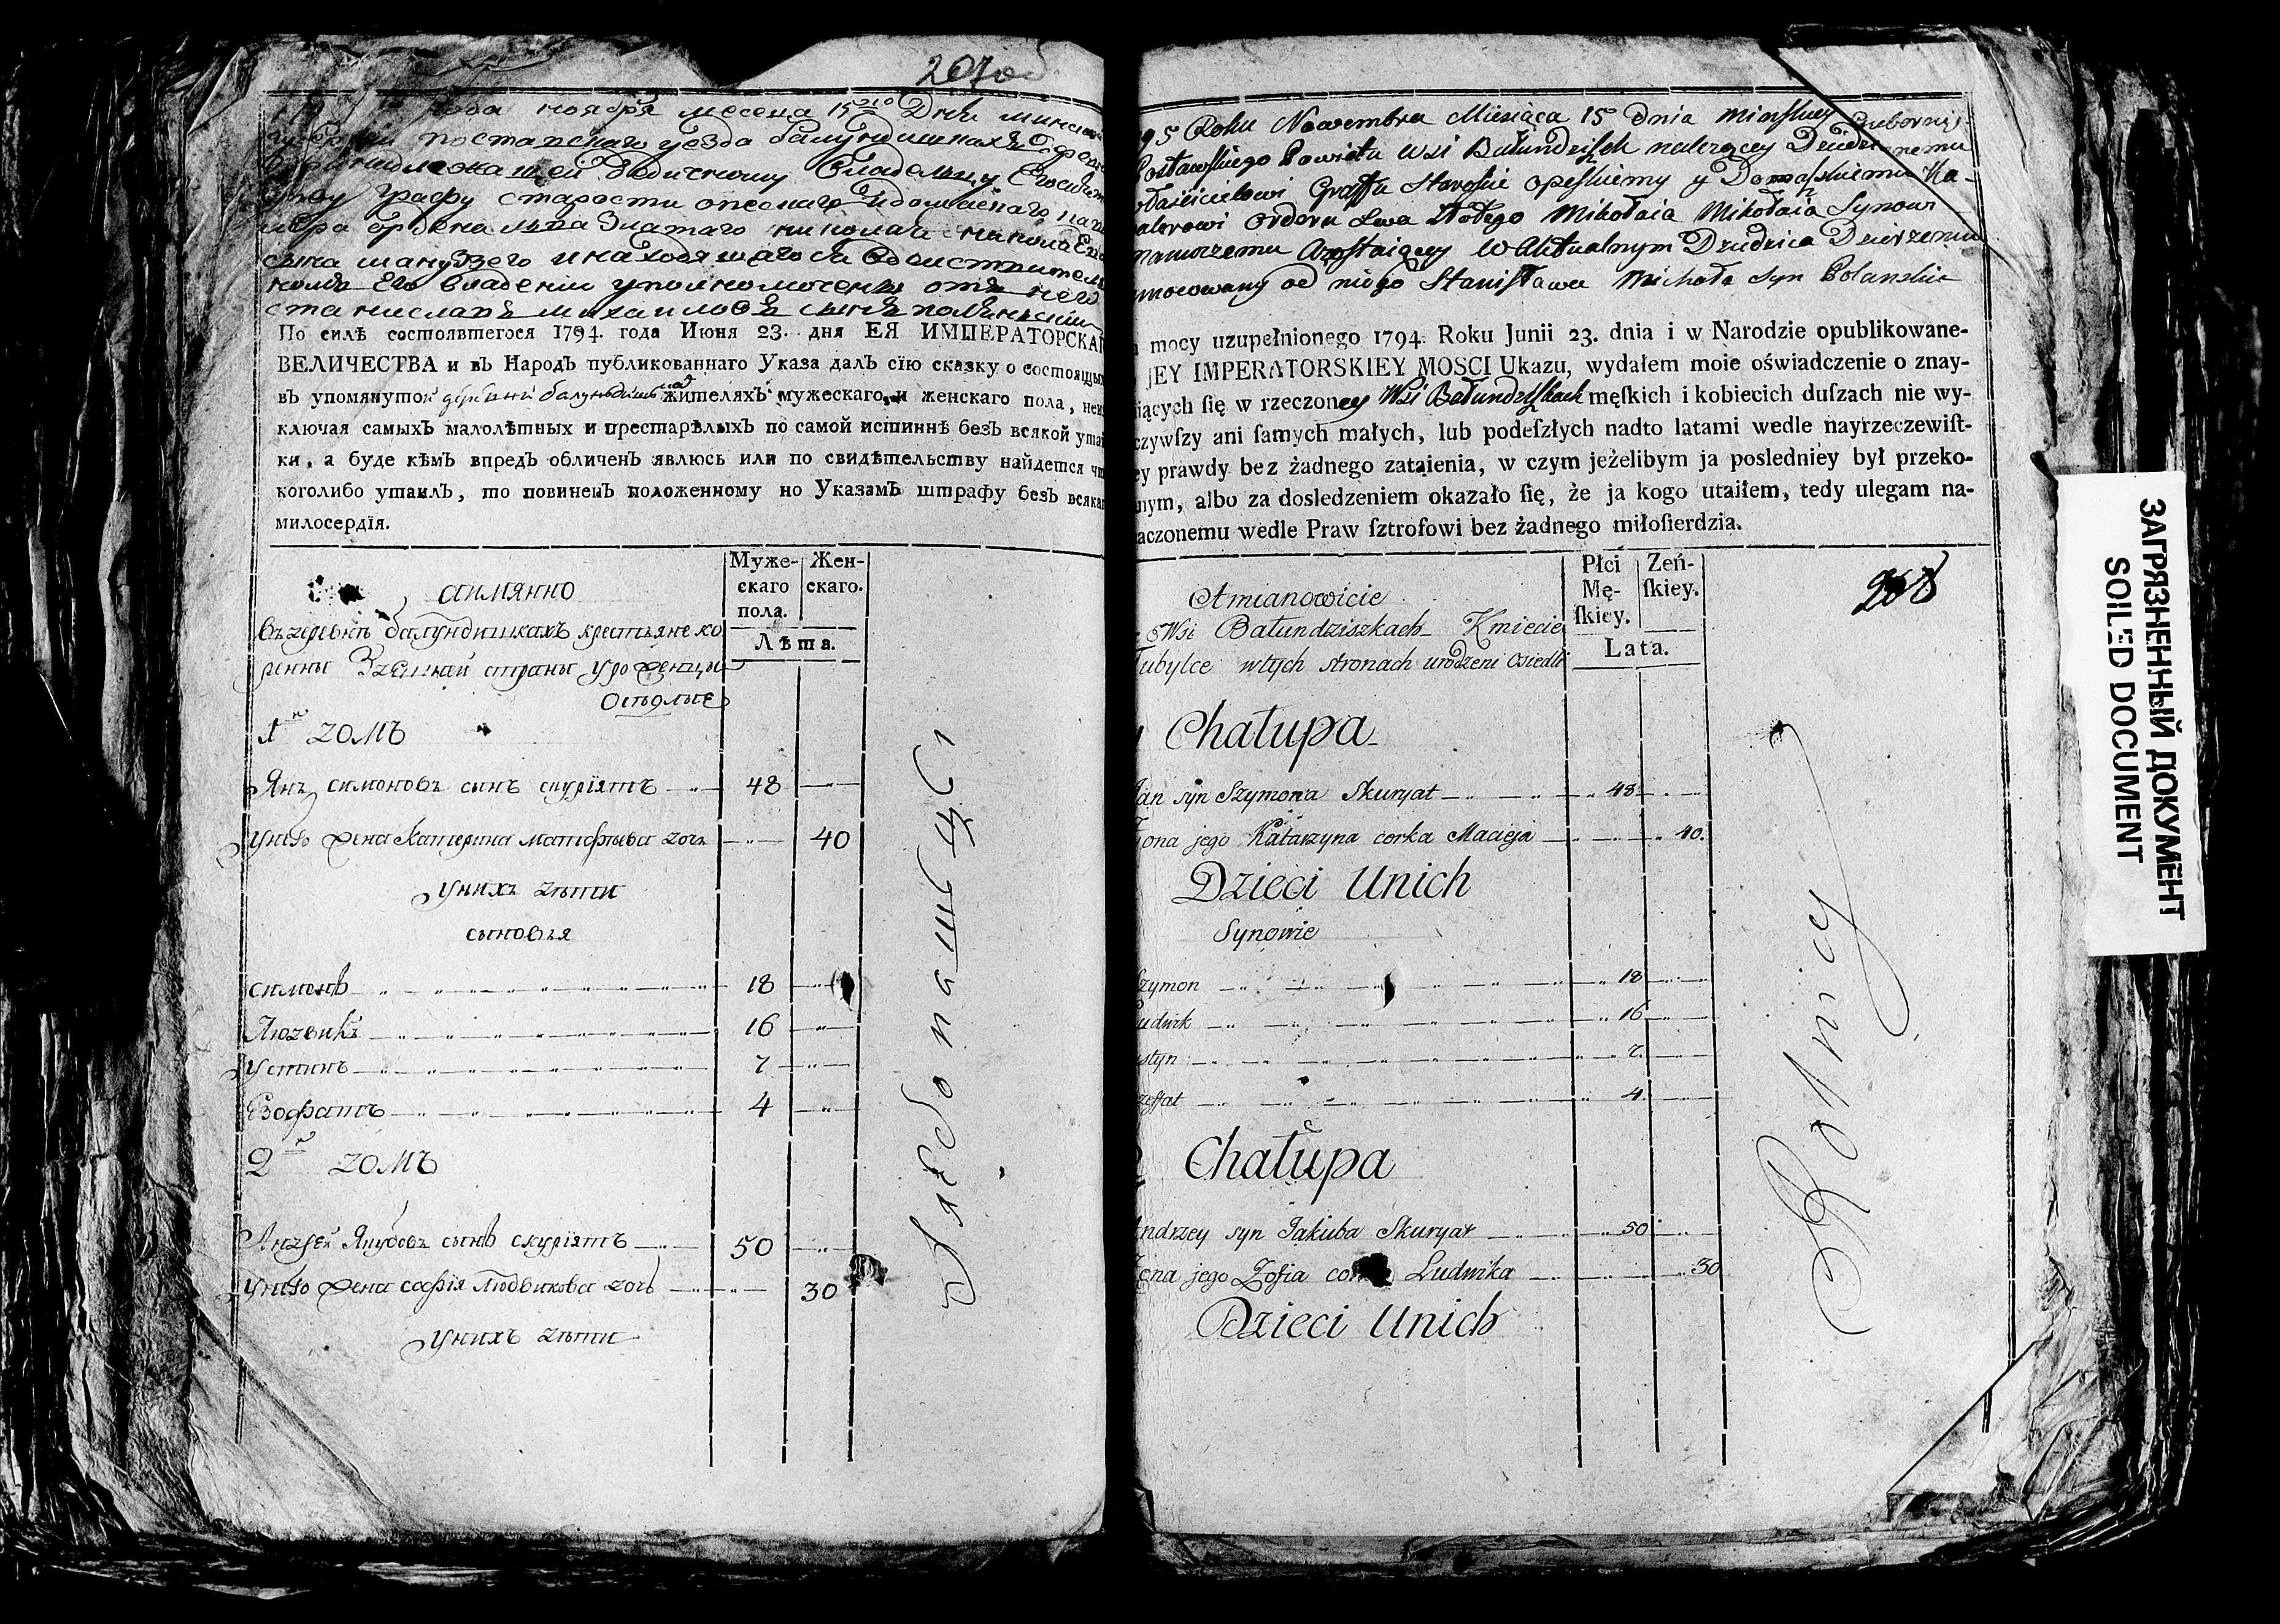 207об
года ноября месеца 15го Дня минской
губернии поставскаго уезда балундишкахъ
принадлежащей дедичному Владельцу
графу старости опескаго идомашевскаго
ордена льва Златаго николая николаева
сына мануззего инаходящагося вдействителном
Его владении уполномоченъ отъ него
станиславъ михаиловъ сынъ полянский
По силѣ состоявшегося 1794. года Июня 23. дня ЕЯ ИМПЕРАТОРСКАГ
ВЕЛИЧЕСТВА и въ Народъ публикованнаго Указа далъ сїю сказку о состоящих
въ упомянутой деревни балундишкахъ жителяхъ мужескаго и женскаго пола, неи
ключая самыхъ малолѣтныхъ и престарѣлыхъ по самой истиннѣ безъ всякой утай
ки, а буде кѣмъ впредъ обличенъ явлюсь или по свидѣтельству найдется чт
коголибо утаилъ, то повиненъ положенному но Указамъ штрафу безъ всякаг
милосердїя.
аимянно
Муже-
скаго
пола.
Жен-
скаго.
Лѣта.
Въ деревнѣ балундишкахъ крестьяне ко
ренны Здешней страны уроженцы
Оседлые
1й домъ
Янъ симоновъ сынъ скуріятъ 48
унево жена катерина матофѣева дочь 40
унихъ дѣти
сыновья
симонъ 18
Людвикъ 16
Устинъ 7
Езофатъ 4
2й домъ
Андрей Якубовъ сынъ скуріятъ 50
унево жена софія людвикова дочь 30
унихъ дѣти
95 Roku Nowembra Miesiąca 15 dnia Minskiey Guberny
Postawskiego Powiatu Wsi Bałundziszk należącey Dziedzicznemu
właścicielowi Graffu Staroście opeskiemu y Domaszewskiemu Ka-
walerowi Orderu Lwa Złotego Mikołaia Mikołaia Synowi
Manuzzemu Zostaiącey w Aktualnym Dziedzica Dzierżeniu
mocowany od niego Stanisława Michała Syn Polanskie
mocy uzupełnionego 1794. Roku Junii 23. dnia i w Narodzie opublikowane-
JEY IMPERATORSKIEY MOSCI Ukazu, wydałem moie oświadczenie o znay-
iących ſię w rzeczoney Wsi Bałundziszkach męſkich i kobiecich duſzach nie wy-
czywſzy ani ſamych małych, lub podeſzłych nadto latami wedle nayrzeczewiſt-
ey prawdy bez żadnego zatajenia, w czym jeżelibym ja posledniey był przeko-
nym, albo za dosledzeniem okazało ſię, że ja kogo utaiłem, tedy ulegam na-
aczonemu wedle Praw ſztrofowi bez żadnego miłoſierdzia.
208
Amianowicie
Płci
Mę-
ſkiey.
Zeń-
ſkiey.
Lata.
Wsi Bałundziszkach Kmiecie
Tubylce wtych stronach urodzeni Osiedli
Chałupa
Jan syn Szymona Skuryat 48
Żona jego Katarzyna corka Macieja 40.
Dzieci Unich
Synowie
Szymon 18
Ludwik 16
styn 7
zeffat 4
2 Chałupa
Andrzey syn Jakuba Skuryat 50
Żona jego Zofia corka Ludwika 30
Dzieci Unich
Rolnicy
ЗАГРЯЗНЕННЫЙ ДОКУМЕНТ
SOILED DOCUMENT